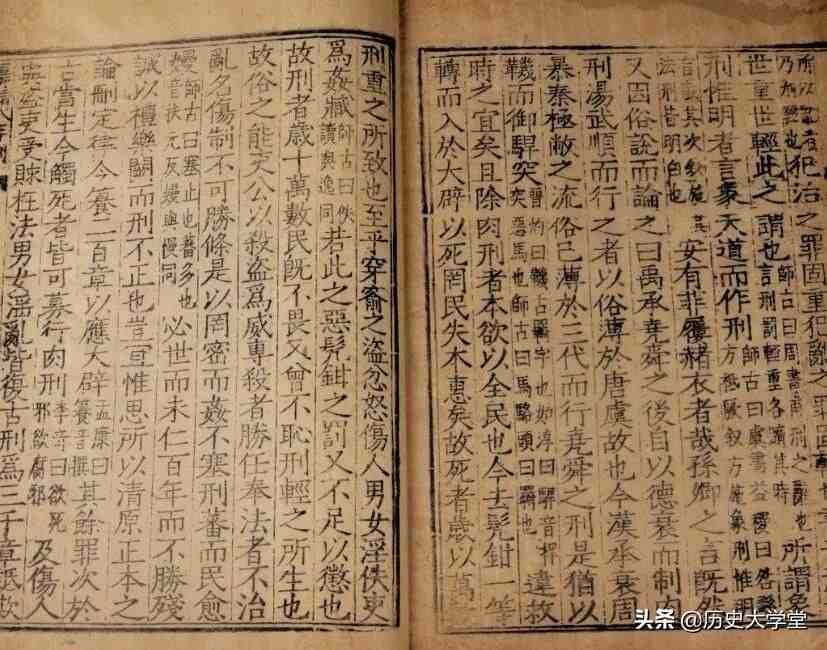 犯治之罪固重犯亂之罪固
世重世輕此之謂也師古曰周書甫刑之辭也言刑罰輕重各隨其時所謂象
刑惟明者言象天道而作刑師古曰虞書益稷曰咎繇方祗厥敘方施象刑惟明
言敬其次敘施其法刑皆明白也安有菲屨赭衣者哉孫卿之言既然
又因俗說而論之曰禹承堯舜之後自以德衰而制肉
刑湯武順而行之者以俗薄於唐虞故也今漢承衰周
暴秦極敝之流俗已薄於三代而行堯舜之刑是猶以
鞿而御駻突晉灼曰鞿古羈字也如淳曰駻音捍突惡馬也師古曰馬絡頭曰羈也違救
時之宜矣且除肉刑者本欲以全民也今去髡鉗一等
轉而入於大辟以死罔民失本惠矣故死者歲以萬
刑重之所致也至乎穿窬之盜忿怒傷人男女淫佚吏
為姦臧師古曰佚讀與逸同若此之惡髡鉗之罰又不足以懲也
故刑者歲十萬數民既不畏又曾不恥刑輕之所生也
故俗之能吏公以殺盜為威專殺者勝任奉法者不治
亂名傷制不可勝條是以罔密而姦不塞刑蕃而民愈
嫚師古曰塞止也蕃多也音扶元反嫚與慢同必世而未仁百年而不勝殘
誠以禮樂闕而刑不正也豈宜惟思所以清原正本之
論刪定律令籑二百章以應大辟孟康曰籑音撰其餘罪次於
古當生今觸死者皆可募行肉刑李奇曰欲死邪欲腐邪及傷人
與盜吏受賕枉法男女淫亂皆復古刑為三千章詆欺
头条 @历史大学堂